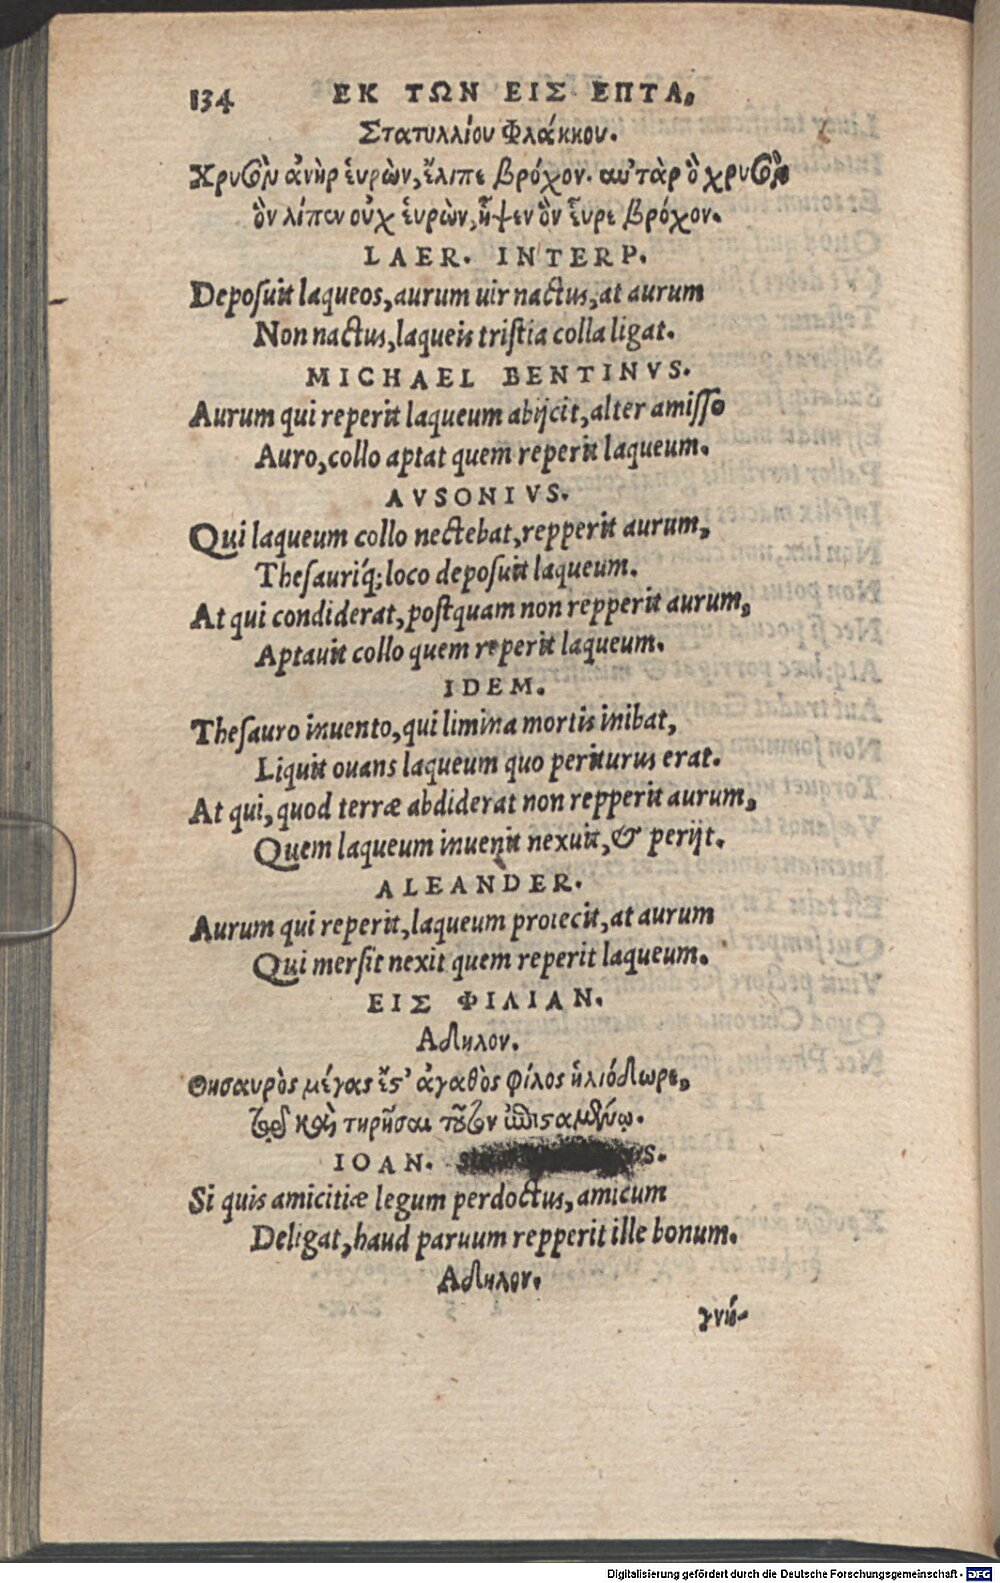 134 ΕΚ ΤΩΝ ΕΙΣ ΕΠΤΑ,
Στατυλλίου Φλάκκου.
Χρυσὸν ἀνὴρ ἑυρὼν, ἔλιπε βρόχον. αὐτὰρ ὁ χρυσὸν
ὃν λίπεν οὐχ ἑυρὼν, ἧψεν ὃν εὗρε βρόχον.
LAER. INTERP.
Deposuit laqueos, aurum uir nactus, at aurum
Non nactus, laqueis tristia colla ligat.
MICHAEL BENTINVS.
Aurum qui reperit laqueum abijcit, alter amisso
Auro, collo aptat quem reperit laqueum.
AVSONIVS.
Qui laqueum collo nectebat, repperit aurum,
Thesauriq́; loco deposuit laqueum.
At qui condiderat, postquam non repperit aurum,
Aptauit collo quem reperit laqueum.
IDEM.
Thesauro inuento, qui limina mortis inibat,
Liquit ouans laqueum quo periturus erat.
At qui, quod terræ abdiderat non repperit aurum,
Quem laqueum inuenit nexuit, & perijt.
ALEANDER.
Aurum qui reperit, laqueum proiecit, at aurum
Qui mersit nexit quem reperit laqueum.
ΕΙΣ ΦΙΛΙΑΝ.
Αδηλον.
Θησαυρὸς μέγας ἔς᾽ ἀγαθὸς φίλος ἡλιόδωρε,
τῷ καὶ τηρῆσαι τοῦτον ἐπισαμένῳ.
IOAN.
Si quis amicitiæ legum perdoctus, amicum
Deligat, haud paruum repperit ille bonum.
Αδηλον.
γνή-
Digitalisierung gefördert durch die Deutsche Forschungsgemeinschaft - DFG